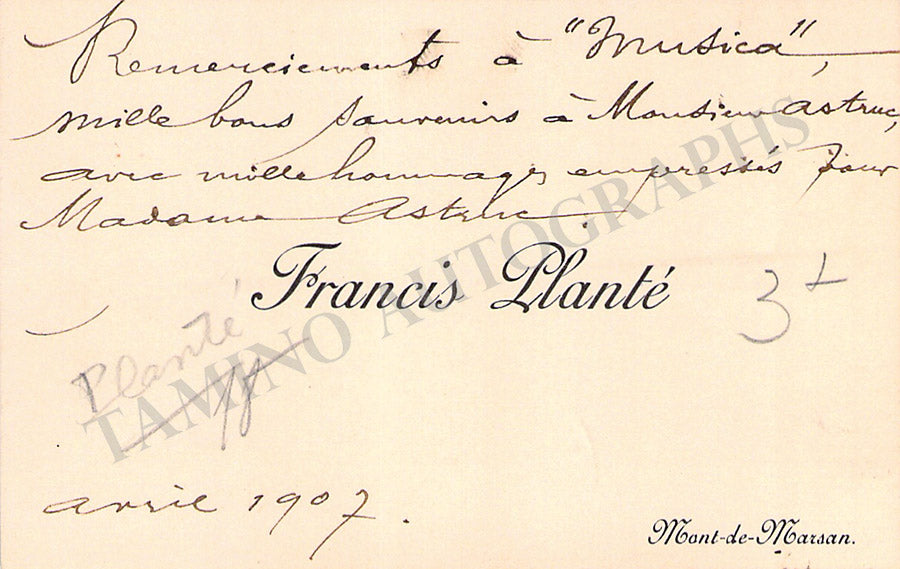 Remerciements à "Musica",
mille bons souvenirs à Monsieur Astruc,
avec mille hommages empressés pour
Madame Astruc.
Francis Planté
Planté
3+
TAMINO AUTOGRAPHS
avril 1907.
Mont-de-Marsan.